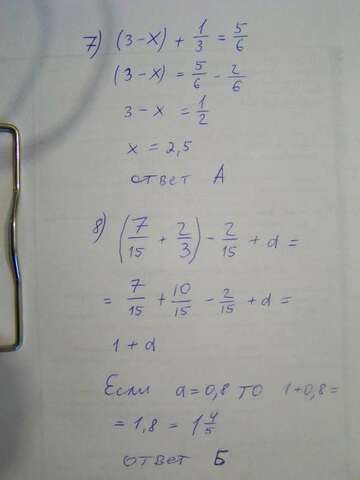 7) (3-x) + 1/3 = 5/6
(3-x) = 5/6 - 2/6
3-x = 1/2
x = 2,5
ответ А
8) (7/15 + 2/3) - 2/15 + d =
= 7/15 + 10/15 - 2/15 + d =
1 + d
Если a=0,8 то 1+0,8=
= 1,8 = 1 4/5
ответ Б